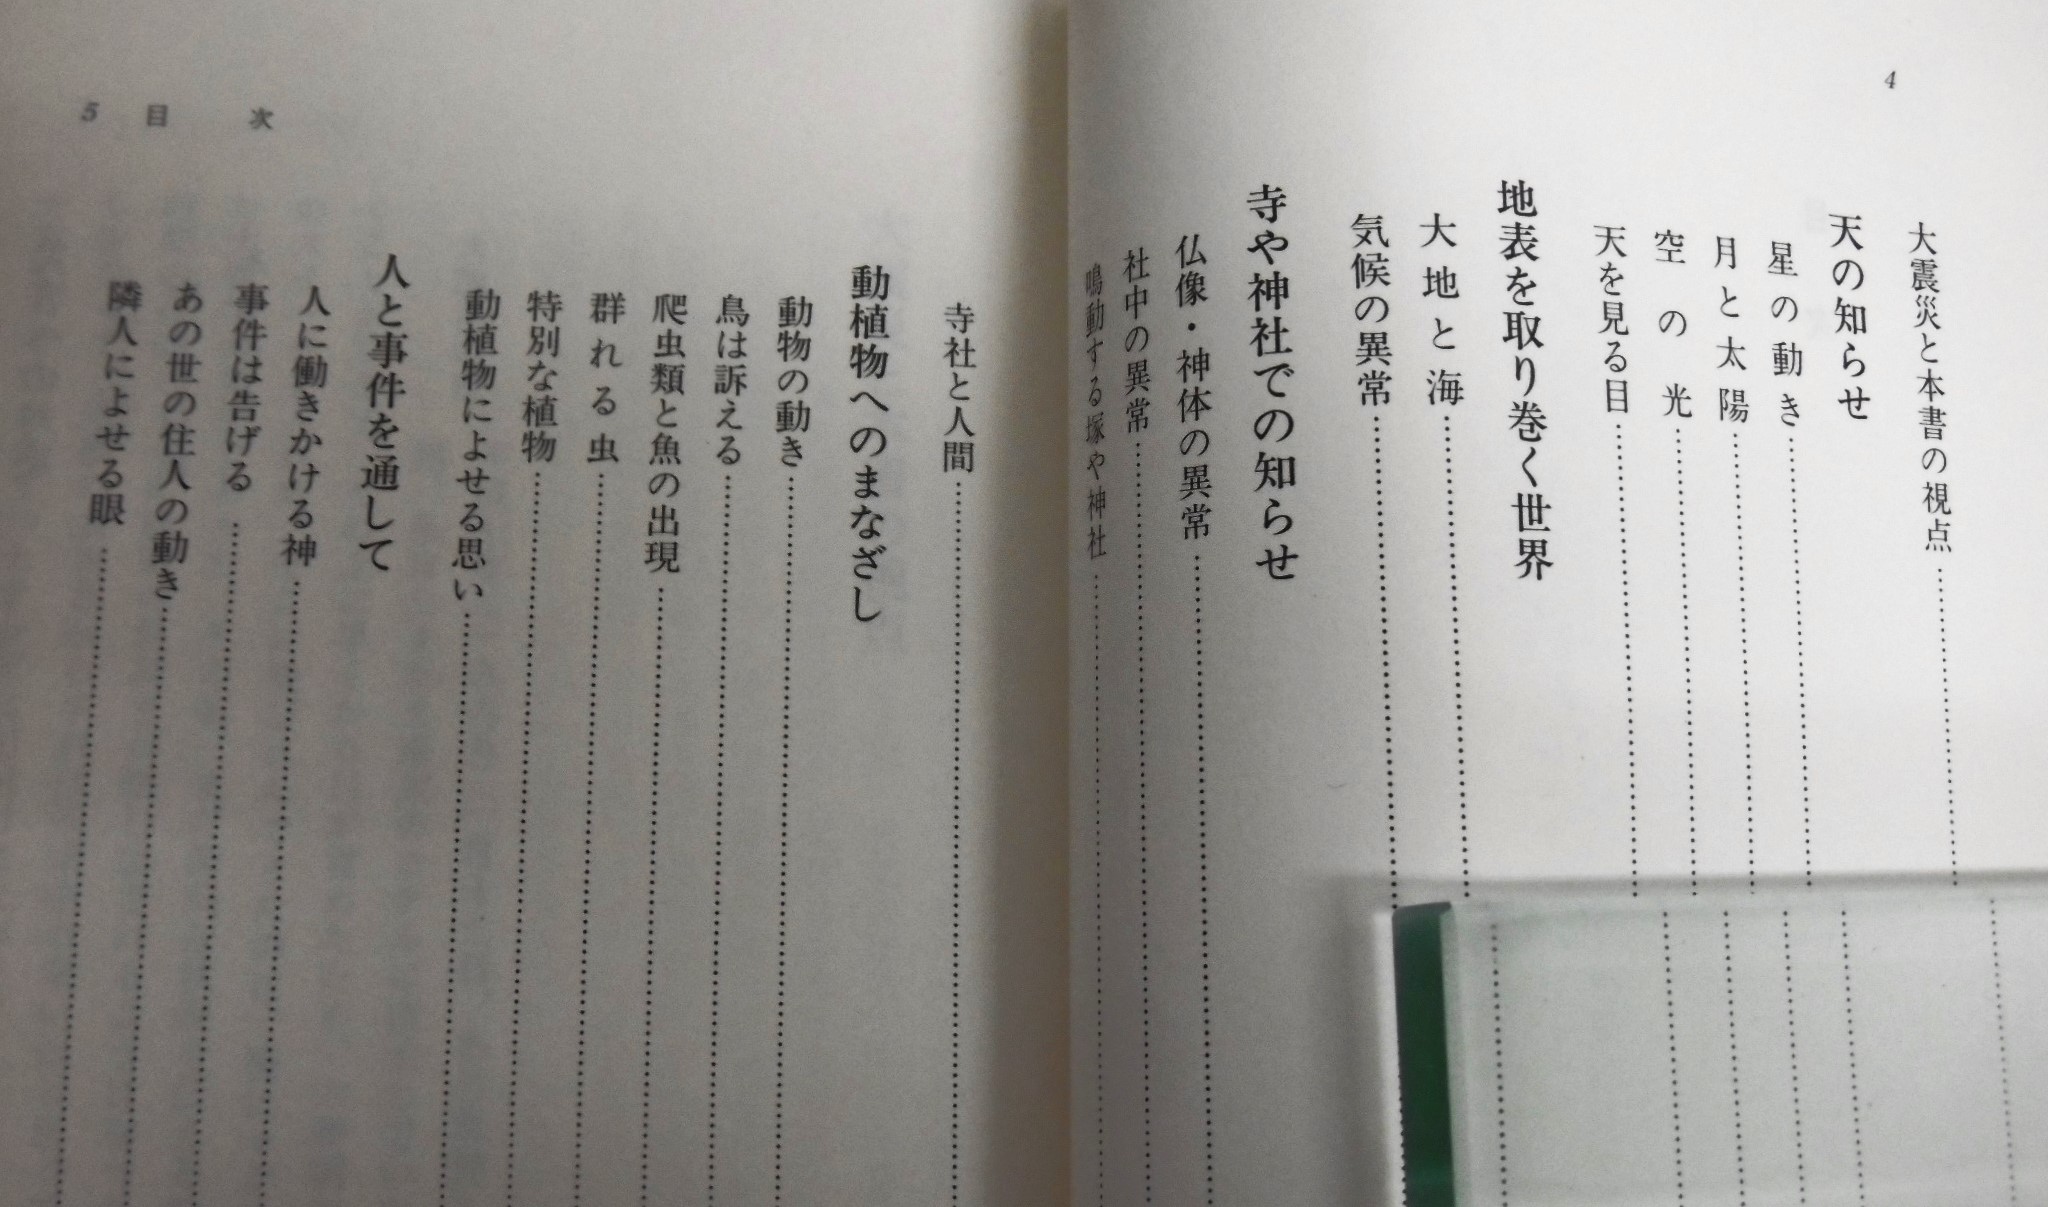 4
大震災と本書の視点
天の知らせ
星の動き
月と太陽
空の光
天を見る目
地表を取り巻く世界
大地と海
気候の異常
寺や神社での知らせ
仏像・神体の異常
社中の異常
鳴動する塚や神社
5 目次
寺社と人間
動植物へのまなざし
動物の動き
鳥は訴える
爬虫類と魚の出現
群れる虫
特別な植物
動植物によせる思い
人と事件を通して
人に働きかける神
事件は告げる
あの世の住人の動き
隣人によせる眼